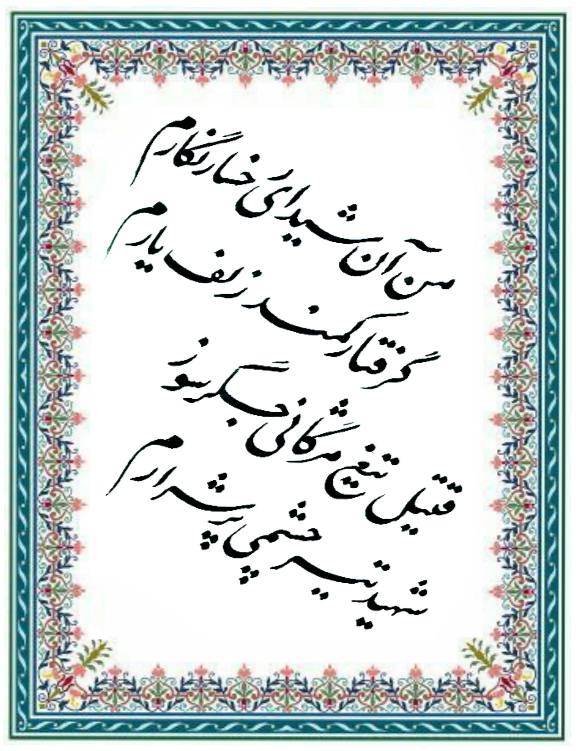 من آن شیدای رخسار نگارم
گرفتار کمند زلف یارم
قتیل تیغ مژگانی جگرسوز
شهید تیر چشمی پرشرارم